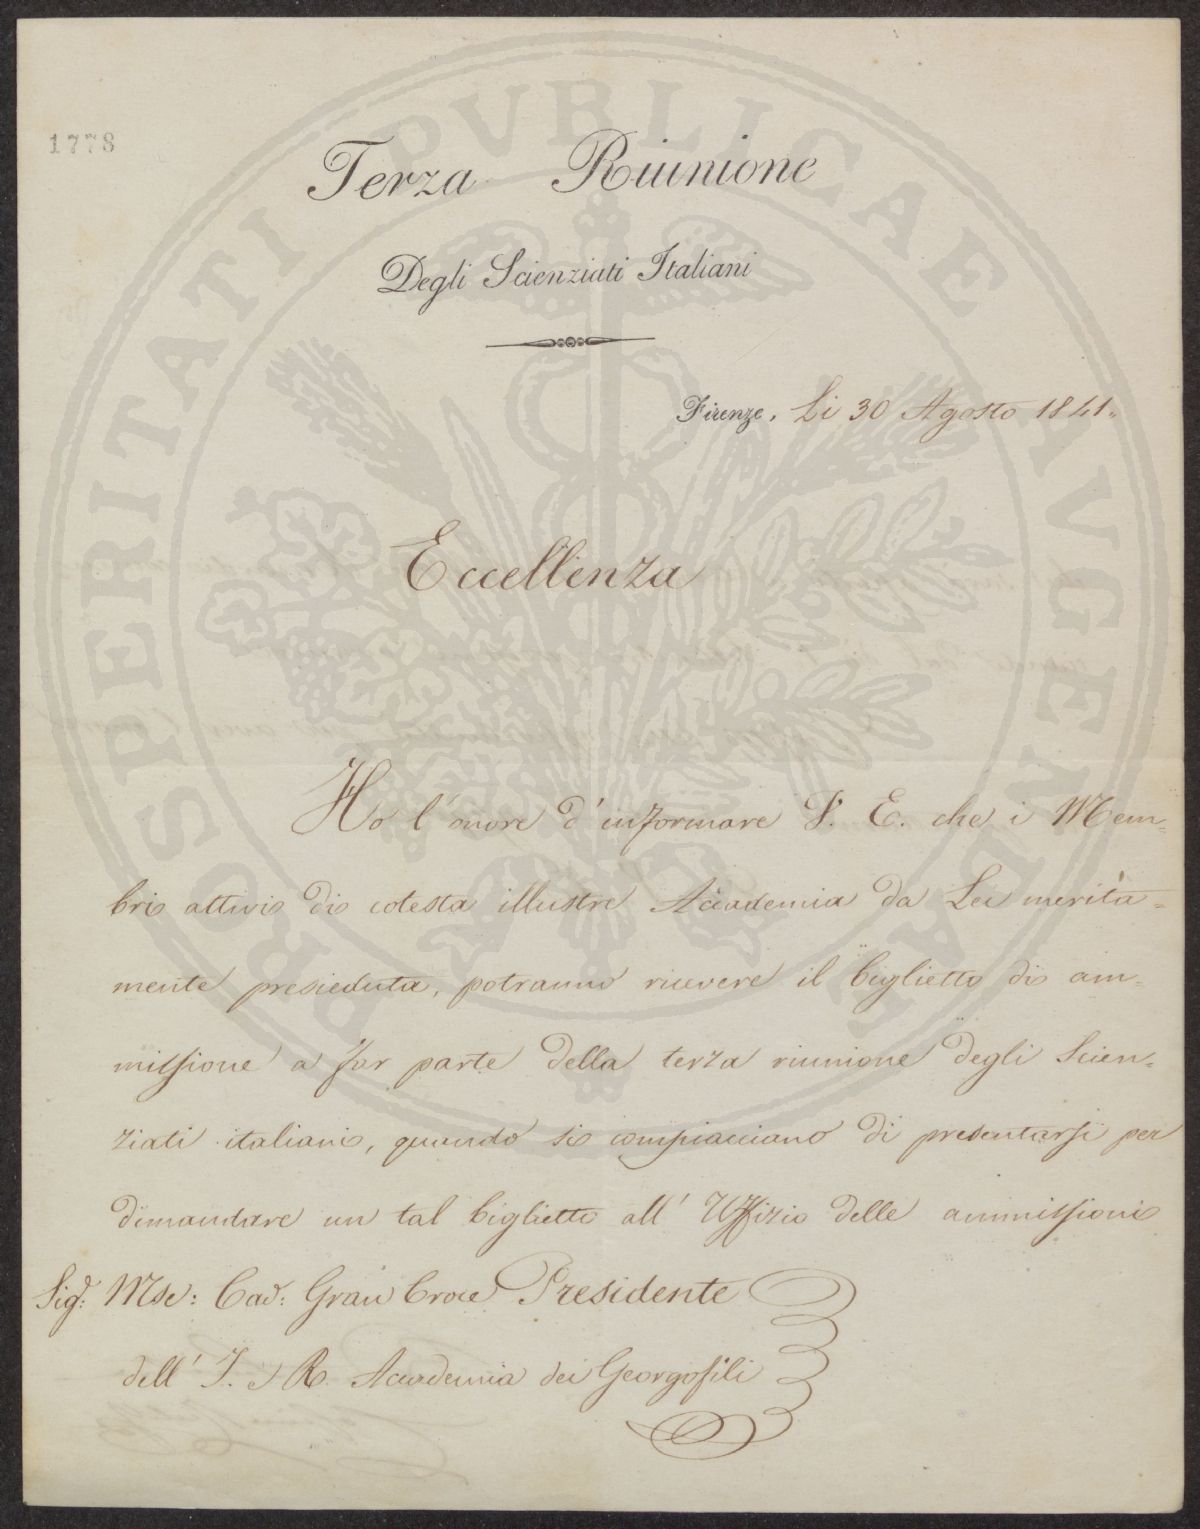 PROSPERITATI PVBLICAE AVGENDAE
1778
Terza Riunione
Degli Scienziati Italiani
Firenze, Li 30 Agosto 1841.
Eccellenza
Ho l'onore d'informare V. E. che i Mem=
bri attivi di cotesta illustre Accademia da Lei merita=
mente presieduta, potranno ricevere il biglietto di am=
missione a far parte della terza riunione degli Scien=
ziati italiani, quando si compiacciano di presentarsi per
dimandare un tal biglietto all'Uffizio delle ammissioni
Sigr: Mse: Cav: Gran Croce Presidente
dell'I. e R. Accademia dei Georgofili